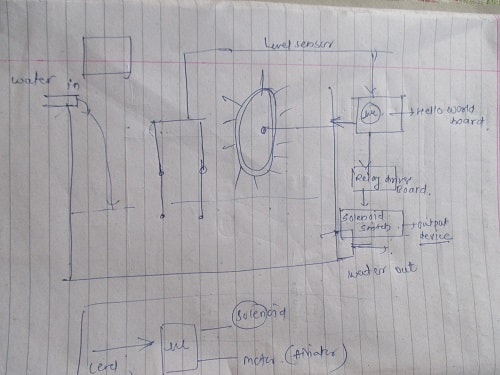 Level sensor
water in
uc
Hello world
board.
Relay driver
board.
Solenoid
switch
output
device.
water out
Solenoid
uc
motor. (Aviator)
Level